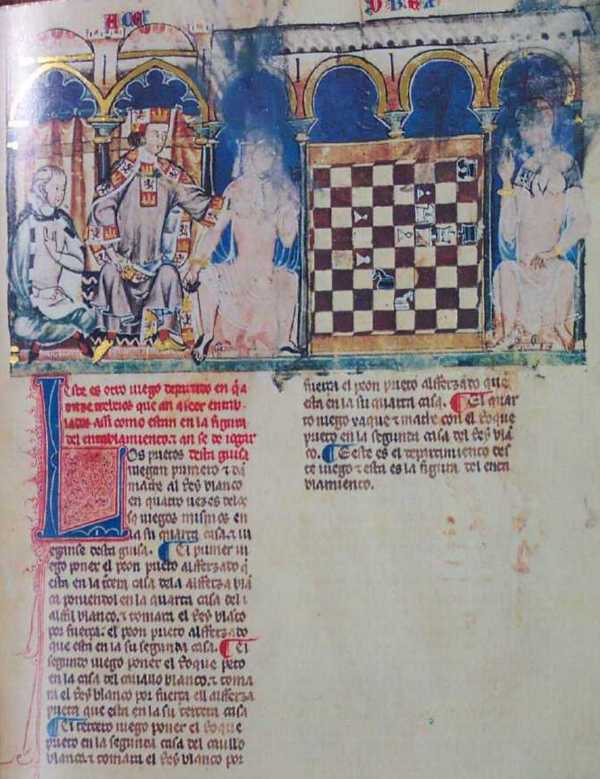 Este es otro iuego departido en q̃ a
onze trebeios que an a seer entab
lados assi como estan en la figura
del entablamiento. & an se de iogar
LOs prietos desta guisa
iuegan primero & dã
mathe al Rey blanco
en quatro uezes delos
sus iuegos mismos en
la su quarta casa. & iu
eganse desta guisa. El primer iu
ego poner el peon prieto alfferzado q̃
esta en la tercera casa dela alfferza blã
ca poniendol en la quarta casa del
alffil blanco. & tomara el Rey blãco
por fuerça. el peon prieto alfferzado
que esta en la su segunda casa. El
segundo iuego poner el Roque prieto
en la casa del cauallo blanco. & toma
ra el Rey blanco por fuerça ell alfferza
prieta que esta en la su tercera casa
El tercero iuego poner el Roque
prieto en la segunda casa del cauallo
blanco. & tomara el Rey blanco por
fuerça el peon prieto alfferzado que
esta en la su quarta casa. El quar
to iuego xaque & mathe con el Roque
prieto en la segunda casa del Rey blã
co. & este es el departimiento des
te iuego & esta es la figura del enta
blamiento.